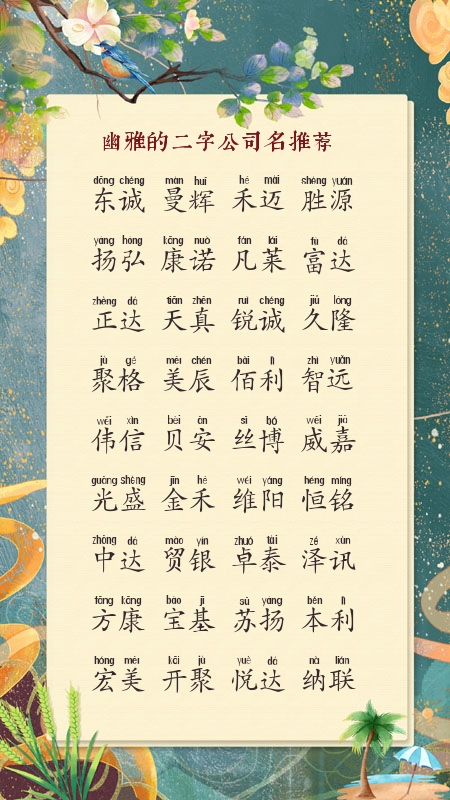 幽雅的二字公司名推荐
dōng chéng màn huī hé mài shèng yuán
东诚 曼辉 禾迈 胜源
yáng hóng kāng nuò fán lái fù dá
扬弘 康诺 凡莱 富达
zhèng dá tiān zhēn ruì chéng jiǔ lóng
正达 天真 锐诚 久隆
jù gé měi chén bǎi lì zhì yuǎn
聚格 美辰 佰利 智远
wěi xìn bèi ān sī bó wēi jiā
伟信 贝安 丝博 威嘉
guāng shèng jīn hé wéi yáng héng míng
光盛 金禾 维阳 恒铭
zhōng dá mào yín zhuó tài zé xùn
中达 贸银 卓泰 泽讯
fāng kāng bǎo jī sū yáng běn lì
方康 宝基 苏扬 本利
hóng měi kāi jù yuè dá nà lián
宏美 开聚 悦达 纳联